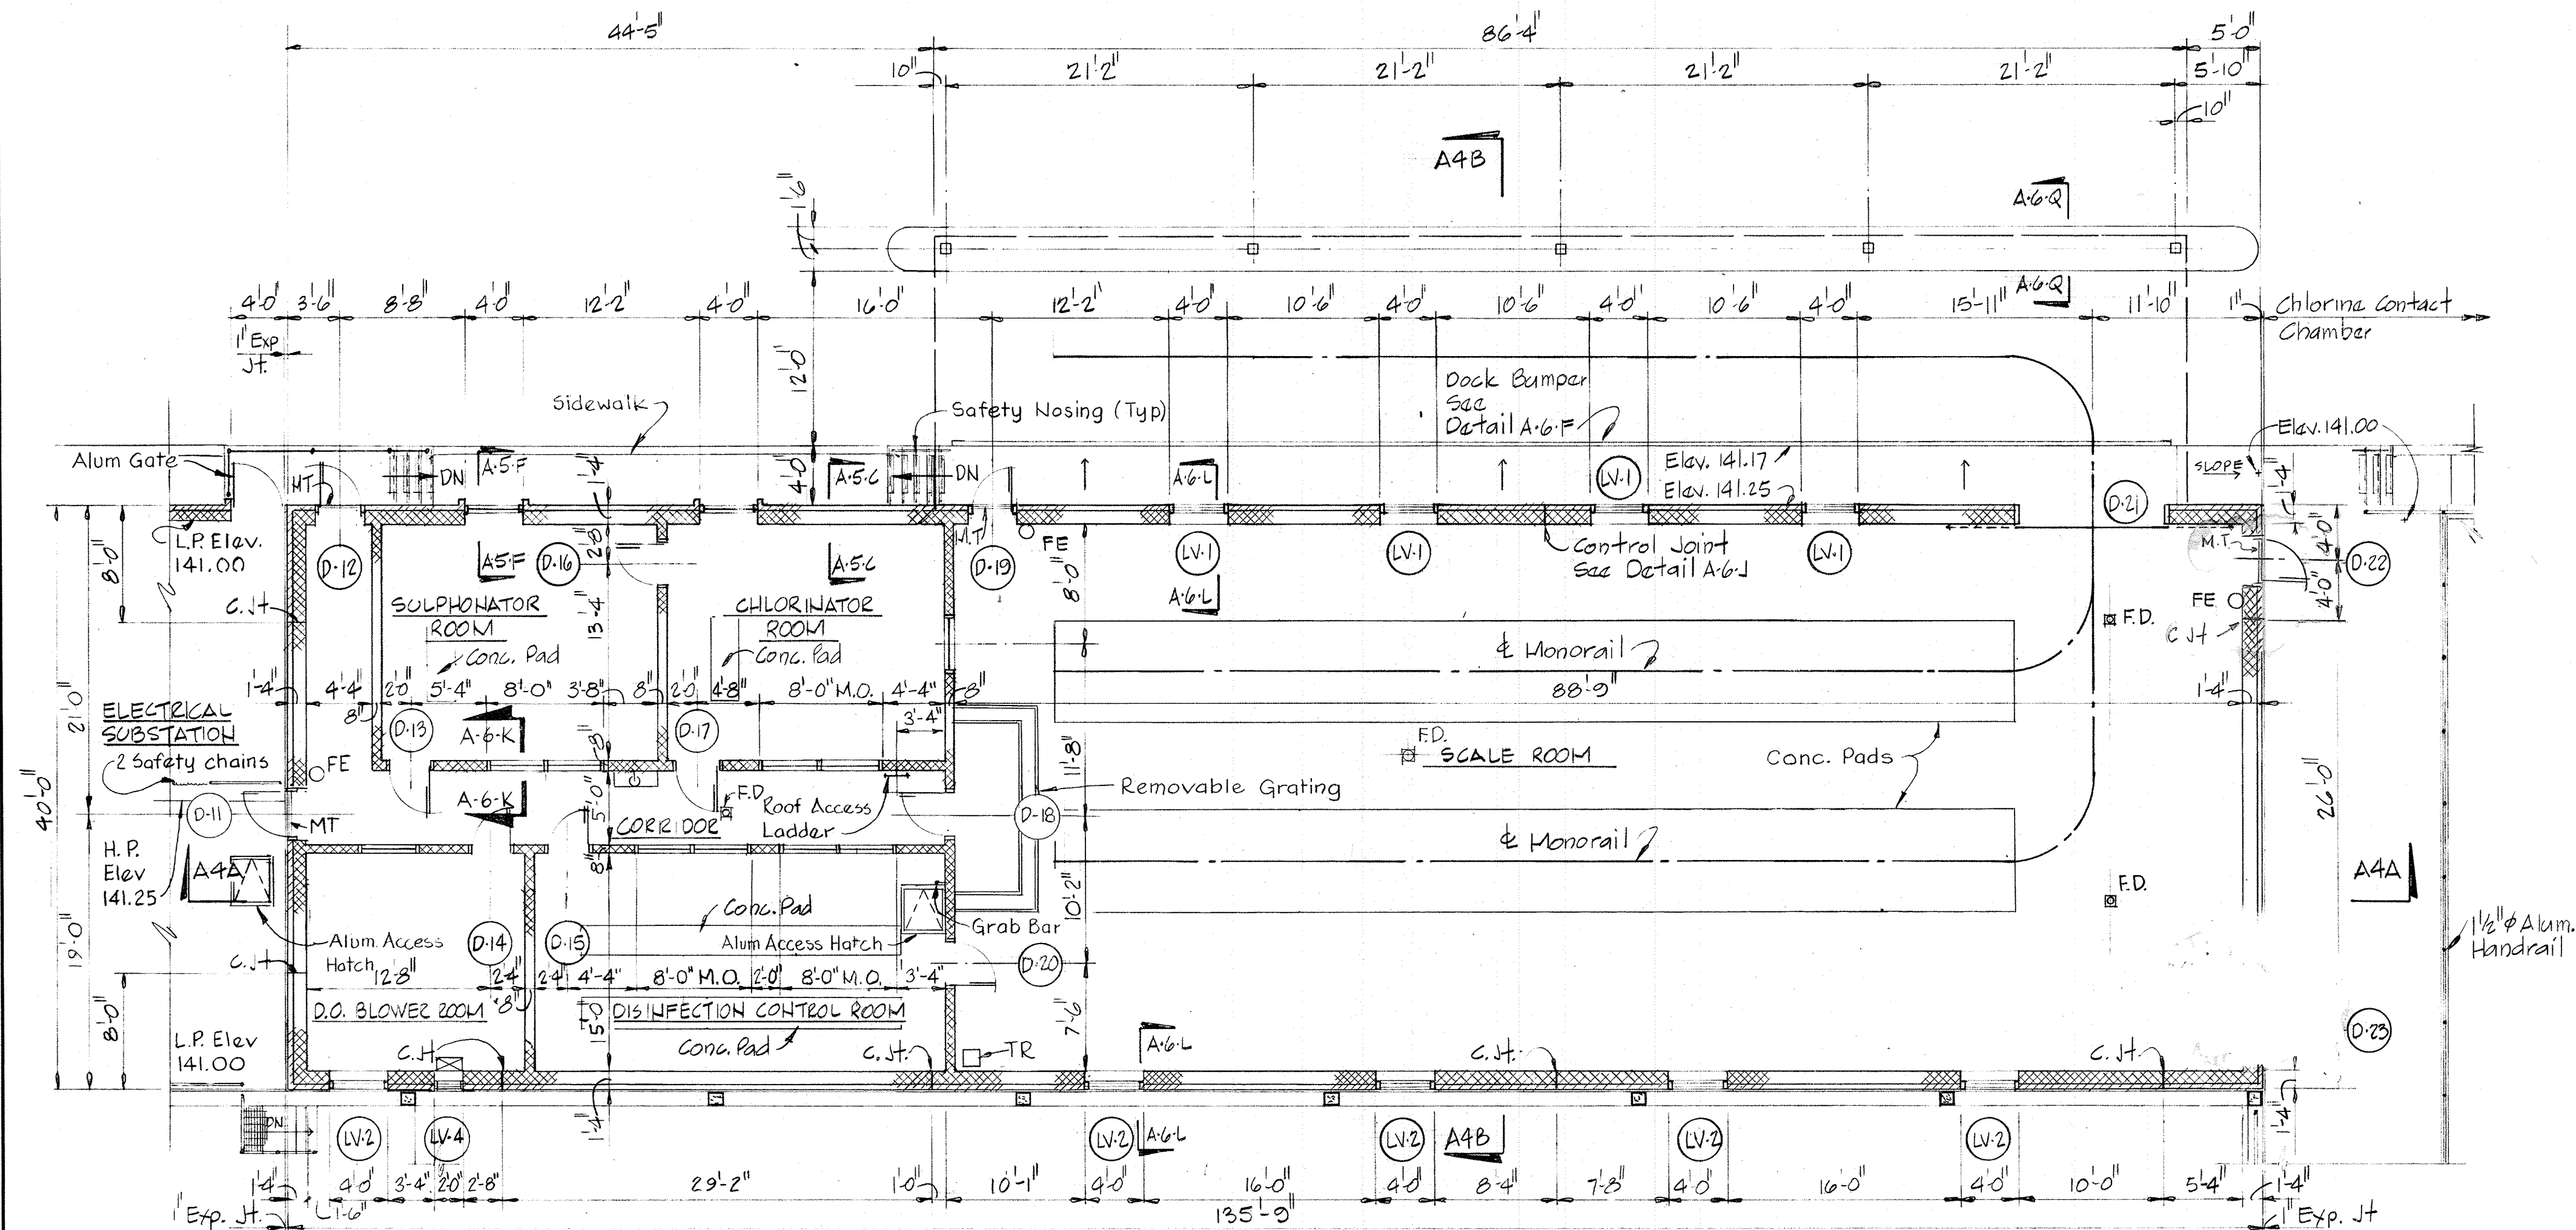 44'-5"
86'-4"
5'-0"
10"
21'-2"
21'-2"
21'-2"
21'-2"
5'-10"
10"
A4B
1'-6"
A·6·Q
A·6·Q
4'-0"
3'-6"
8'-8"
4'-0"
12'-2"
4'-0"
16'-0"
12'-2"
4'-0"
10'-6"
4'-0"
10'-6"
4'-0"
10'-6"
4'-0"
15'-11"
11'-10"
1"
Chlorine Contact
Chamber
1" Exp
Jt.
12'-0"
Sidewalk
Safety Nosing (Typ)
Dock Bumper
See
Detail A·6·F
Elev. 141.00
Alum Gate
MT
DN
A·5·F
1'-4"
4'-0"
A·5·C
DN
A·6·L
LV·1
Elev. 141.17
Elev. 141.25
SLOPE
1'-4"
D·21
L.P. Elev.
141.00
8'-0"
D·12
A·5·F
D·16
2'-8"
A·5·C
M.T.
D·19
FE
8'-0"
LV·1
LV·1
Control Joint
See Detail A·6·J
LV·1
M.T.
4'-0"
D·22
4'-0"
C. Jt
SULPHONATOR
ROOM
Conc. Pad
13'-4"
CHLORINATOR
ROOM
Conc. Pad
A·6·L
F.D.
FE
C Jt
1'-4"
4'-4"
8"
2'-0"
5'-4"
8'-0"
3'-8"
8"
2'-0"
4'-8"
8'-0" M.O.
4'-4"
8"
3'-4"
℄ Monorail
88'-9"
1'-4"
21'-0"
40'-0"
ELECTRICAL
SUBSTATION
2 Safety chains
FE
D·13
A-6-K
8"
D·17
11'-8"
F.D.
SCALE ROOM
Conc. Pads
26'-0"
Removable Grating
D-11
MT
A-6-K
5'-0"
CORRIDOR
F.D.
Roof Access
Ladder
D-18
℄ Monorail
H.P.
Elev
141.25
A4A
8"
A4A
F.D.
Conc. Pad
Alum Access Hatch
Grab Bar
10'-2"
1½" ϕ Alum.
Handrail
Alum. Access
Hatch
D·14
D·15
D·20
19'-0"
C. Jt
8'-0"
12'-8"
2'-4"
8"
2'-4"
4'-4"
8'-0" M.O.
2'-0"
8'-0" M.O.
3'-4"
D.O. BLOWER ROOM
15'-0"
DISINFECTION CONTROL ROOM
Conc. Pad
7'-6"
D·23
L.P. Elev
141.00
C. Jt.
C. Jt.
TR
A·6·L
C. Jt.
C. Jt.
DN
LV·2
LV·4
1'-4"
LV·2
A·6·L
LV·2
A4B
LV·2
LV·2
1'-4"
1'-4"
1'-6"
4'-0"
3'-4"
2'-0"
2'-8"
29'-2"
1'-0"
10'-1"
4'-0"
16'-0"
4'-0"
8'-4"
7'-8"
4'-0"
16'-0"
4'-0"
10'-0"
5'-4"
1'-4"
1" Exp. Jt.
135'-9"
1" Exp. Jt